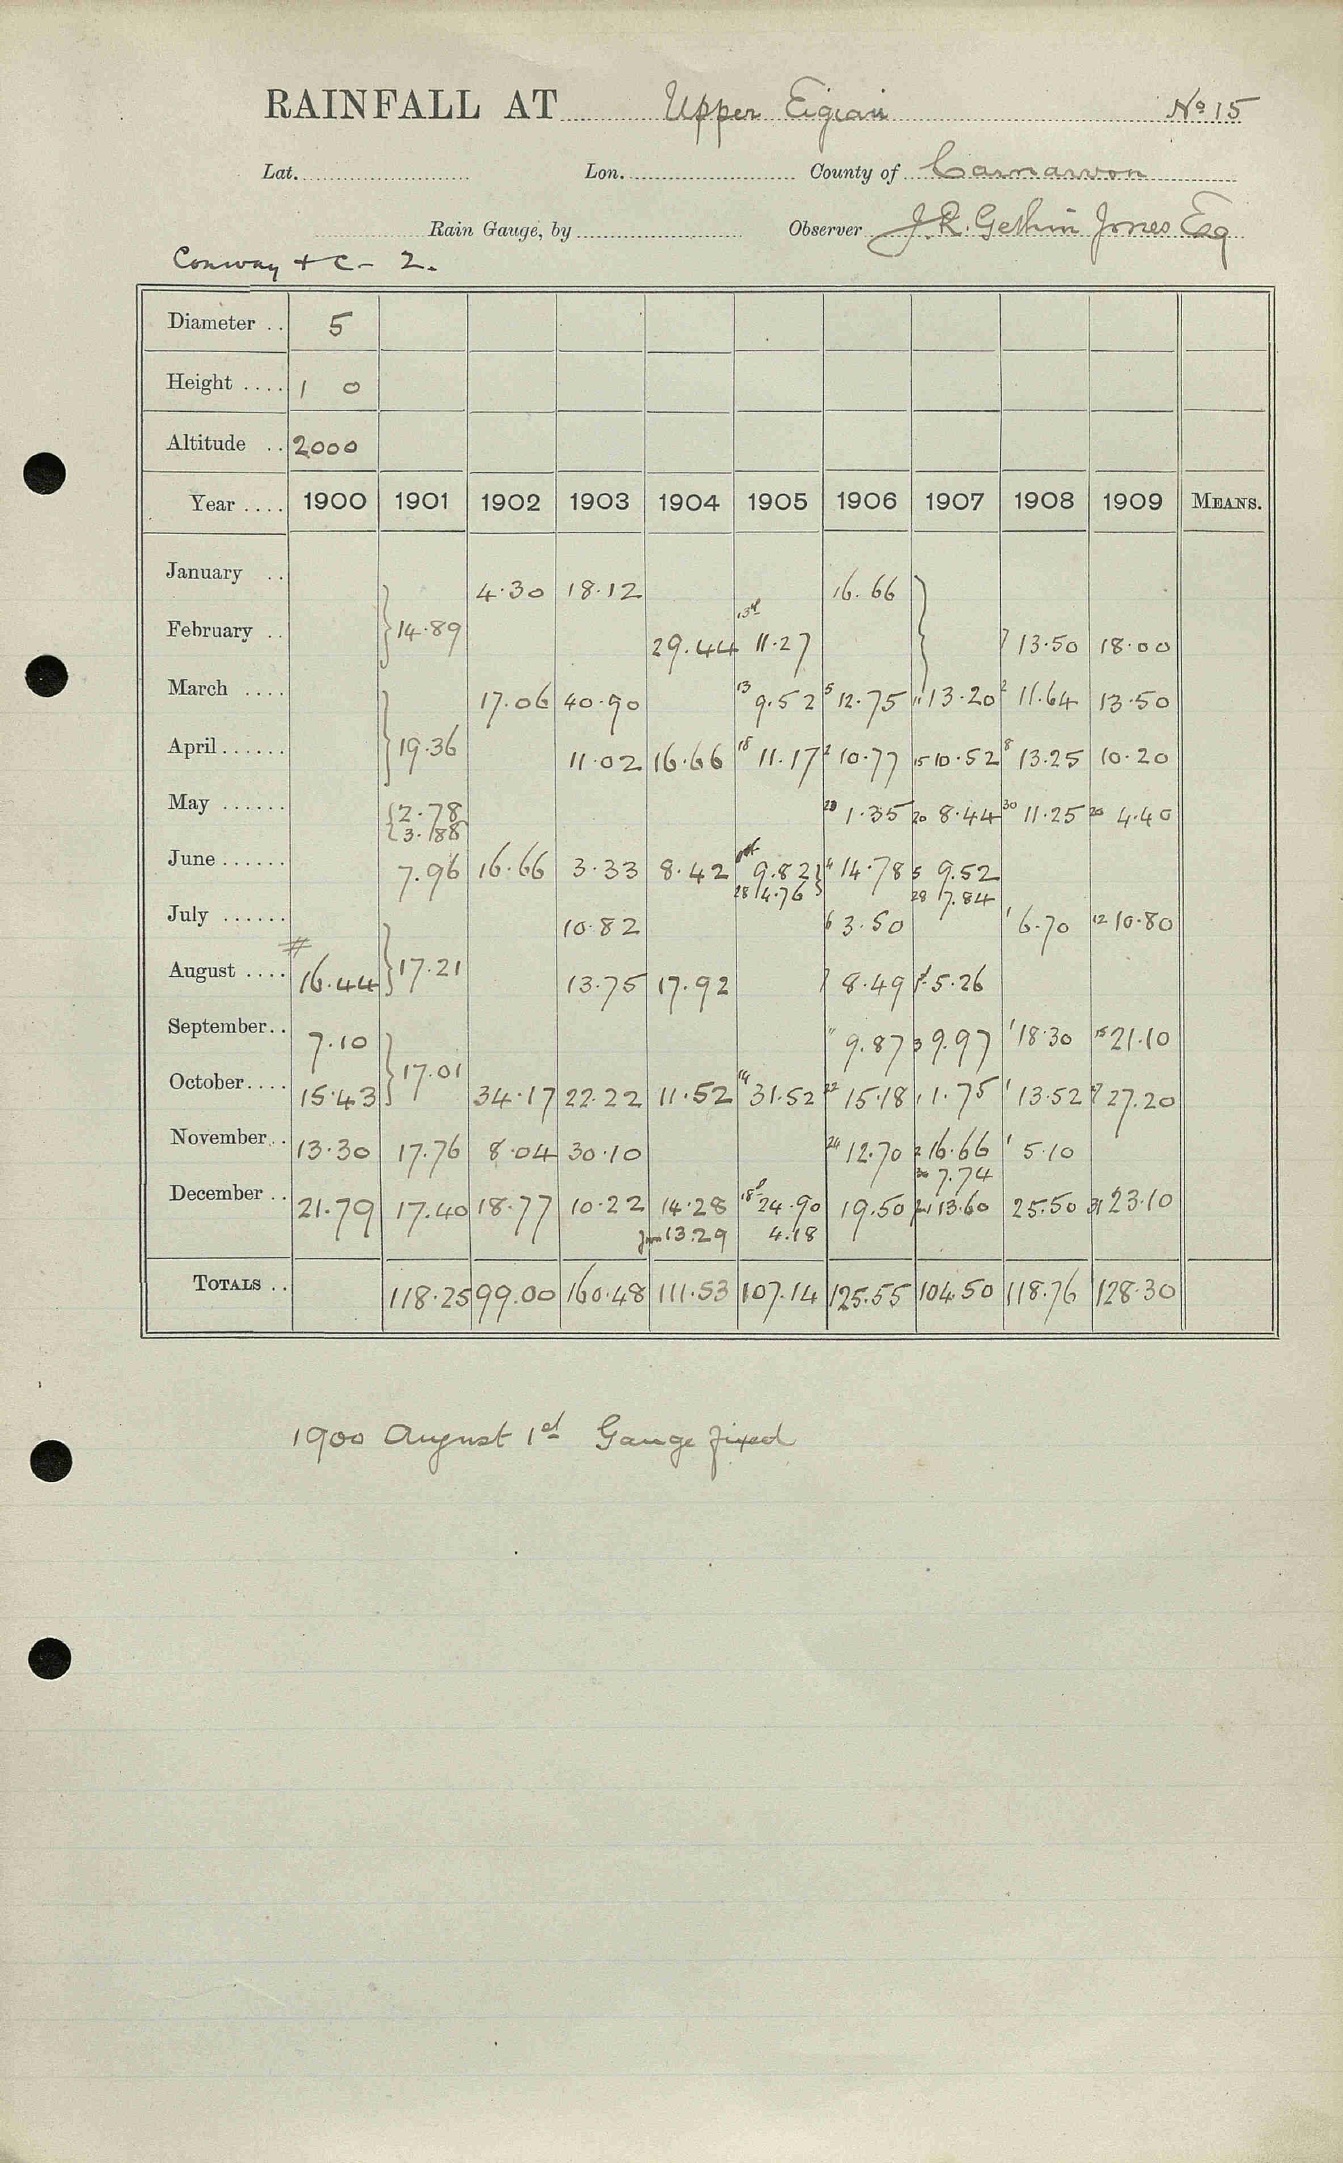 RAINFALL AT Upper Eigiau No 15
Lat. Lon. County of Carnarvon
Rain Gauge, by Observer J. R. Gethin Jones Esq
Conway + C - 2.
Diameter .. 5
Height .... 1 0
Altitude .. 2000
Year .... 1900 1901 1902 1903 1904 1905 1906 1907 1908 1909 MEANS.
January .. 4.30 18.12 16.66
February .. } 14.89 29.44 13th 11.27 } 7 13.50 18.00
March .... 17.06 40.90 13 9.52 5 12.75 11 13.20 2 11.64 13.50
April ...... } 19.36 11.02 16.66 18 11.17 2 10.77 15 10.52 8 13.25 10.20
May ...... { 2.78 28 1.35 20 8.44 30 11.25 20 4.40
{ 3.88
June ...... 7.96 16.66 3.33 8.42 9.82 } 4 14.78 5 9.52
28 14.76 28 7.84
July ...... 10.82 6 3.50 1 6.70 12 10.80
August .... # 16.44 } 17.21 13.75 17.92 7 8.49 1 5.26
September.. 7.10 11 9.87 3 9.97 1 18.30 15 21.10
October.... 15.43 } 17.01 34.17 22.22 11.52 14 31.52 22 15.18 1 1.75 1 13.52 27.20
November.. 13.30 17.76 8.04 30.10 24 12.70 2 16.66 1 5.10
30 7.74
December .. 21.79 17.40 18.77 10.22 14.28 18th 24.90 19.50 21 13.60 25.50 31 23.10
Jan 13.29 4.18
TOTALS .. 118.25 99.00 160.48 111.53 107.14 125.55 104.50 118.76 128.30
1900 August 1st Gauge fixed